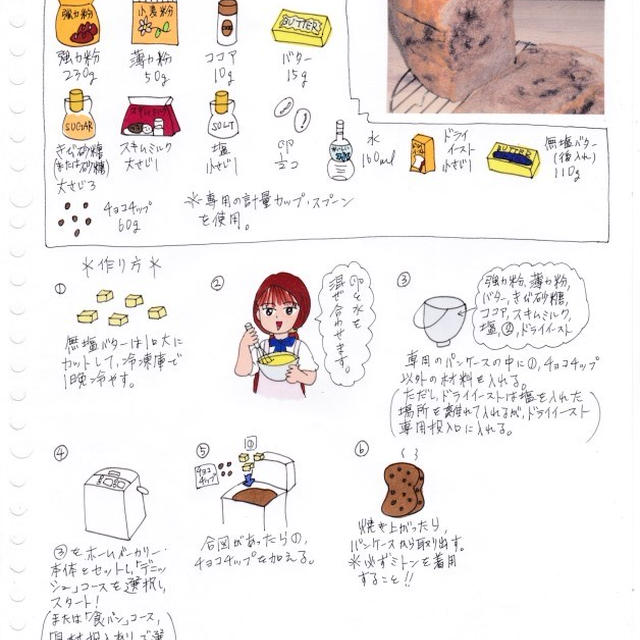 強力粉
小麦粉
ココア
BUTTER
強力粉
230g
薄力粉
50g
ココア
10g
バター
15g
SUGAR
スキムミルク
SOLT
きび砂糖
(または砂糖)
大さじ3
スキムミルク
大さじ1
塩
小さじ1
卵
½コ
水
160ml
ドライ
イースト
小さじ1
BUTTER
無塩バター
(後入れ)
110g
チョコチップ
60g
※専用の計量カップ・スプーン
を使用。
＊作り方＊
①
無塩バターは1口大に
カットして、冷凍庫で
1日冷やす。
②
卵と水を
混ぜ合わせます。
③
強力粉、薄力粉、
バター、きび砂糖、
ココア、スキムミルク、
塩、②、ドライイースト
専用のパンケースの中に①、チョコチップ
以外の材料を入れる。
(ただし、ドライイーストは塩を入れた
場所を離れて入れるが、ドライイースト
専用投入口に入れる。)
④
③をホームベーカリー
本体とセットし、「デニッ
シュ」コースを選択し、
スタート!
(または「食パン」コース、
「具材投入あり」で選
⑤
チョコ
チップ
①
合図があったら①、
チョコチップを加える。
⑥
焼き上がったら、
パンケースから取り出す。
※必ずミトンを着用
すること!!